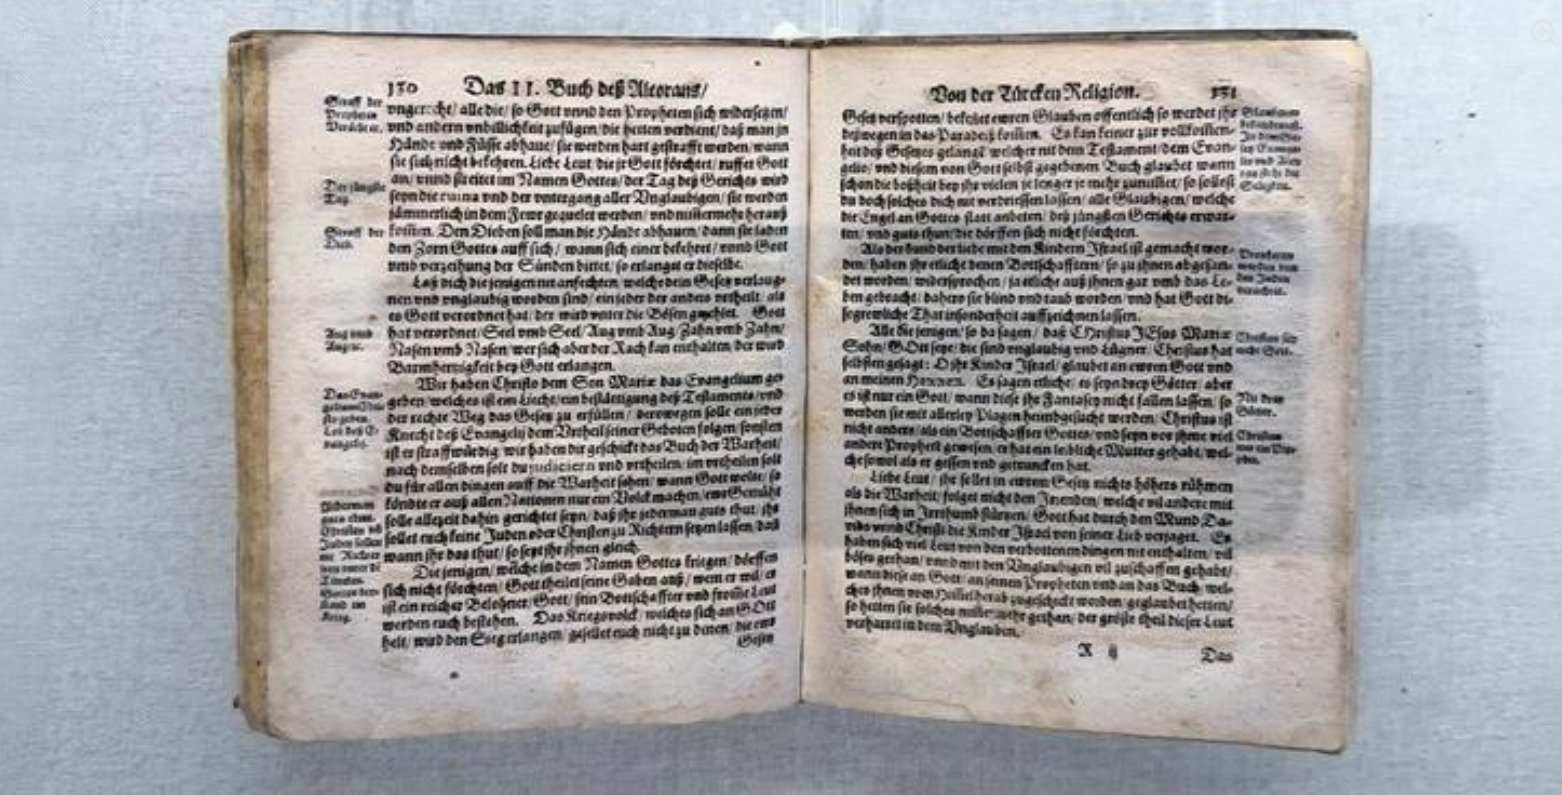 150 Das II. Buch deß Alcorans/
Straff der
Propheten
Verächter.
vngerecht/ alle die/ so Gott vnnd den Propheten sich widersetzen/
vnd andern vnbillichkeit zufügen/ die hetten verdient/ daß man jn
Hände vnd Füsse abhaue/ sie werden hart gestrafft werden/ wann
sie sich nicht bekehren. Liebe Leut die jr Gott förchtet/ ruffet Gott
an/ vnnd streitet im Namen Gottes/ der Tag deß Gerichts wird
Der jüngste
Tag.
seyn die ruina vnd der vntergang aller Vnglaubigen/ sie werden
jämmerlich in dem Fewr gequelet werden/ vnd nimmermehr herauß
Straff der
Dieb.
kom̃en. Den Dieben soll man die Hände abhauen/ dann sie laden
den Zorn Gottes auff sich/ wann sich einer bekehrt/ vnnd Gott
vmb verzeihung der Sünden bittet/ so erlangt er dieselbe.
Laß dich die jenigen nit anfechten, welche dein Gesetz verlaug-
nen vnd vnglaubig worden sind/ ein jeder der anders vrtheilt/ als
es Gott verordnet hat/ der wird vnter die Bösen gezehlet. Gott
Aug vmb
Aug/ꝛc.
hat verordnet/ Seel vmb Seel/ Aug vmb Aug/ Zahn vmb Zahn/
Nasen vmb Nasen/ wer sich aber der Rach kan enthalten/ der wird
Barmhertzigkeit bey Gott erlangen.
Wir haben Christo dem Son Mariæ das Evangelium ge-
geben/ welches ist ein Liecht/ ein bestättigung deß Testaments/ vnd
der rechte Weg das Gesetz zu erfüllen/ derowegen solle ein jeder
Knecht deß Evangelij dem Vrtheil seiner Geboten folgen/ sonsten
ist er straffwürdig/ wir haben dir geschickt das Buch der Warheit/
nach demselben solt du judiciern vnd vrtheilen/ im vrtheilen solt
du für allen dingen auff die Warheit sehen/ wann Gott wolte/ so
köndte er auß allen Nationen nur ein Volck machen/ ewr Gemüht
solle allezeit dahin gerichtet seyn/ daß jhr jederman guts thut/ jhr
sollet euch keine Juden oder Christen zu Richtern setzen lassen/ dañ
wann jhr das thut/ so seyt jhr jhnen gleich.
Die jenigen/ welche in dem Namen Gottes kriegen/ dörffen
sich nicht förchten/ Gott theilet seine Gaben auß/ wem er wil/ er
ist ein reicher Belohner/ Gott/ sein Bottschaffter vnd from̃e Leut
werden euch bestehen. Das Kriegsvolck/ welches sich an GOtt
helt/ wird den Sieg erlangen/ gesellet euch nicht zu denen/ die ewr
Gesetz
Von der Türcken Religion. 151
Gesetz verspotten/ bekennet ewren Glauben offentlich so werdet jhr
deßwegen in das Paradeiß kom̃en. Es kan keiner zur vollkom̃en-
heit deß Gesetzes gelangē welcher nit dem Testament/ dem Evan-
gelio/ vnd diesem von Gott selbst gegebenen Buch glaubet wann
schon die boßheit bey jhr vielen je lenger je mehr zunimbt/ so sollest
du doch solches dich nit verdriessen lassen/ alle Glaubigen/ welche
die Engel an Gottes statt anbeten/ deß jüngsten Gerichts erwar-
ten/ vnd guts thun/ die dörffen sich nicht förchten.
Als der bund der liebe mit den Kindern Israel ist gemacht wor-
den/ haben jhr etliche denen Bottschafftern/ so zu jhnen abgesan-
det worden/ widersprochen/ ja etliche auß jhnen gar vmb das Le-
ben gebracht/ dahero sie blind vnd taub worden/ vnd hat Gott di-
se grewliche That insonderheit auffzeichnen lassen.
Alle die jenigen/ so da sagen/ daß CHristus JEsus Mariæ
Sohn/ GOtt seye/ die sind vnglaubig vnd Lügner/ Christus hat
selbsten gesagt: O jhr Kinder Israel/ glaubet an ewren Gott vnd
an meinen Herren. Es sagen etliche/ es seyn drey Götter/ aber
Nit drey
Götter.
es ist nur ein Gott/ wann diese jhr Fantasey nicht fallen lassen/ so
werden sie mit allerley Plagen heimbgesucht werden/ Christus ist
nicht anders/ als ein Bottschaffter Gottes/ vnd seyn vor jhme viel
andere Propheten gewesen/ er hat ein leibliche Mutter gehabt/ wel-
che sowol als er gessen vnd getruncken hat.
Liebe Leut/ jhr sollet in ewrem Gesetz nichts höhers rühmen
als die Warheit/ folget nicht den Irrenden/ welche vil andere mit
jhnen sich in Irrthumb stürtzen/ Gott hat durch den Mund Da-
vids vnnd Christi die Kinder Israel von seiner Lieb verjaget. Es
haben sich viel Leut von den verbottenen dingen nit enthalten/ vil
böses gethan/ vnnd mit den Vnglaubigen vil zuschaffen gehabt/
wann diese an Gott/ an seinen Propheten vnd an das Buch/ wel-
ches jhnen vom Him̃el herab zugeschickt worden/ geglaubet hetten/
so hetten sie solches nimmermehr gethan/ der gröste theil dieser Leut
verharret in dem Vnglauben.
R ij Das